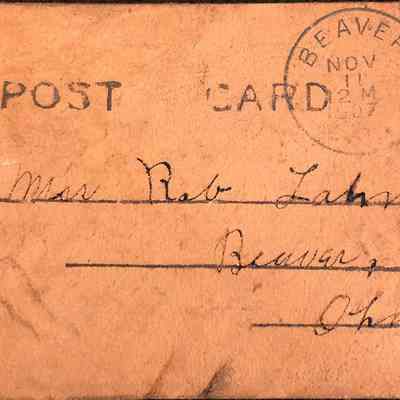 POST CARD
BEAVER
NOV
11
2 M
1907
Rob Lahm
Beaver,
Oh